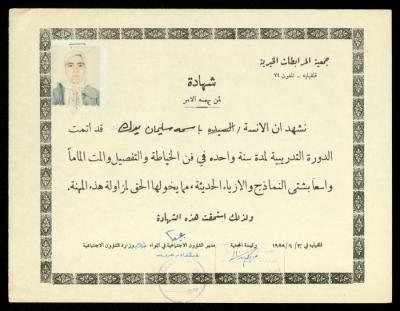 جمعية المرابطات الخيرية
قلقيليه - تلفون ٧٤
شهادة
لمن يهمه الامر
نشهد ان الانسة / السيدة باسمه سليمان قد اتمت
الدورة التدريبية لمدة سنة واحده في فن الخياطة والتفصيل والمت الماماً
واسعاً بشتى النماذج والازياء الحديثة، مما يخولها الحق لمزاولة هذه المهنة.
ولذلك استحقت هذه الشهادة
قلقيليه في ٣٠ / ٦ / ١٩٥٨ رئيسة الجمعية مدير الشؤون الاجتماعية في اللواء وزارة الشؤون الاجتماعية